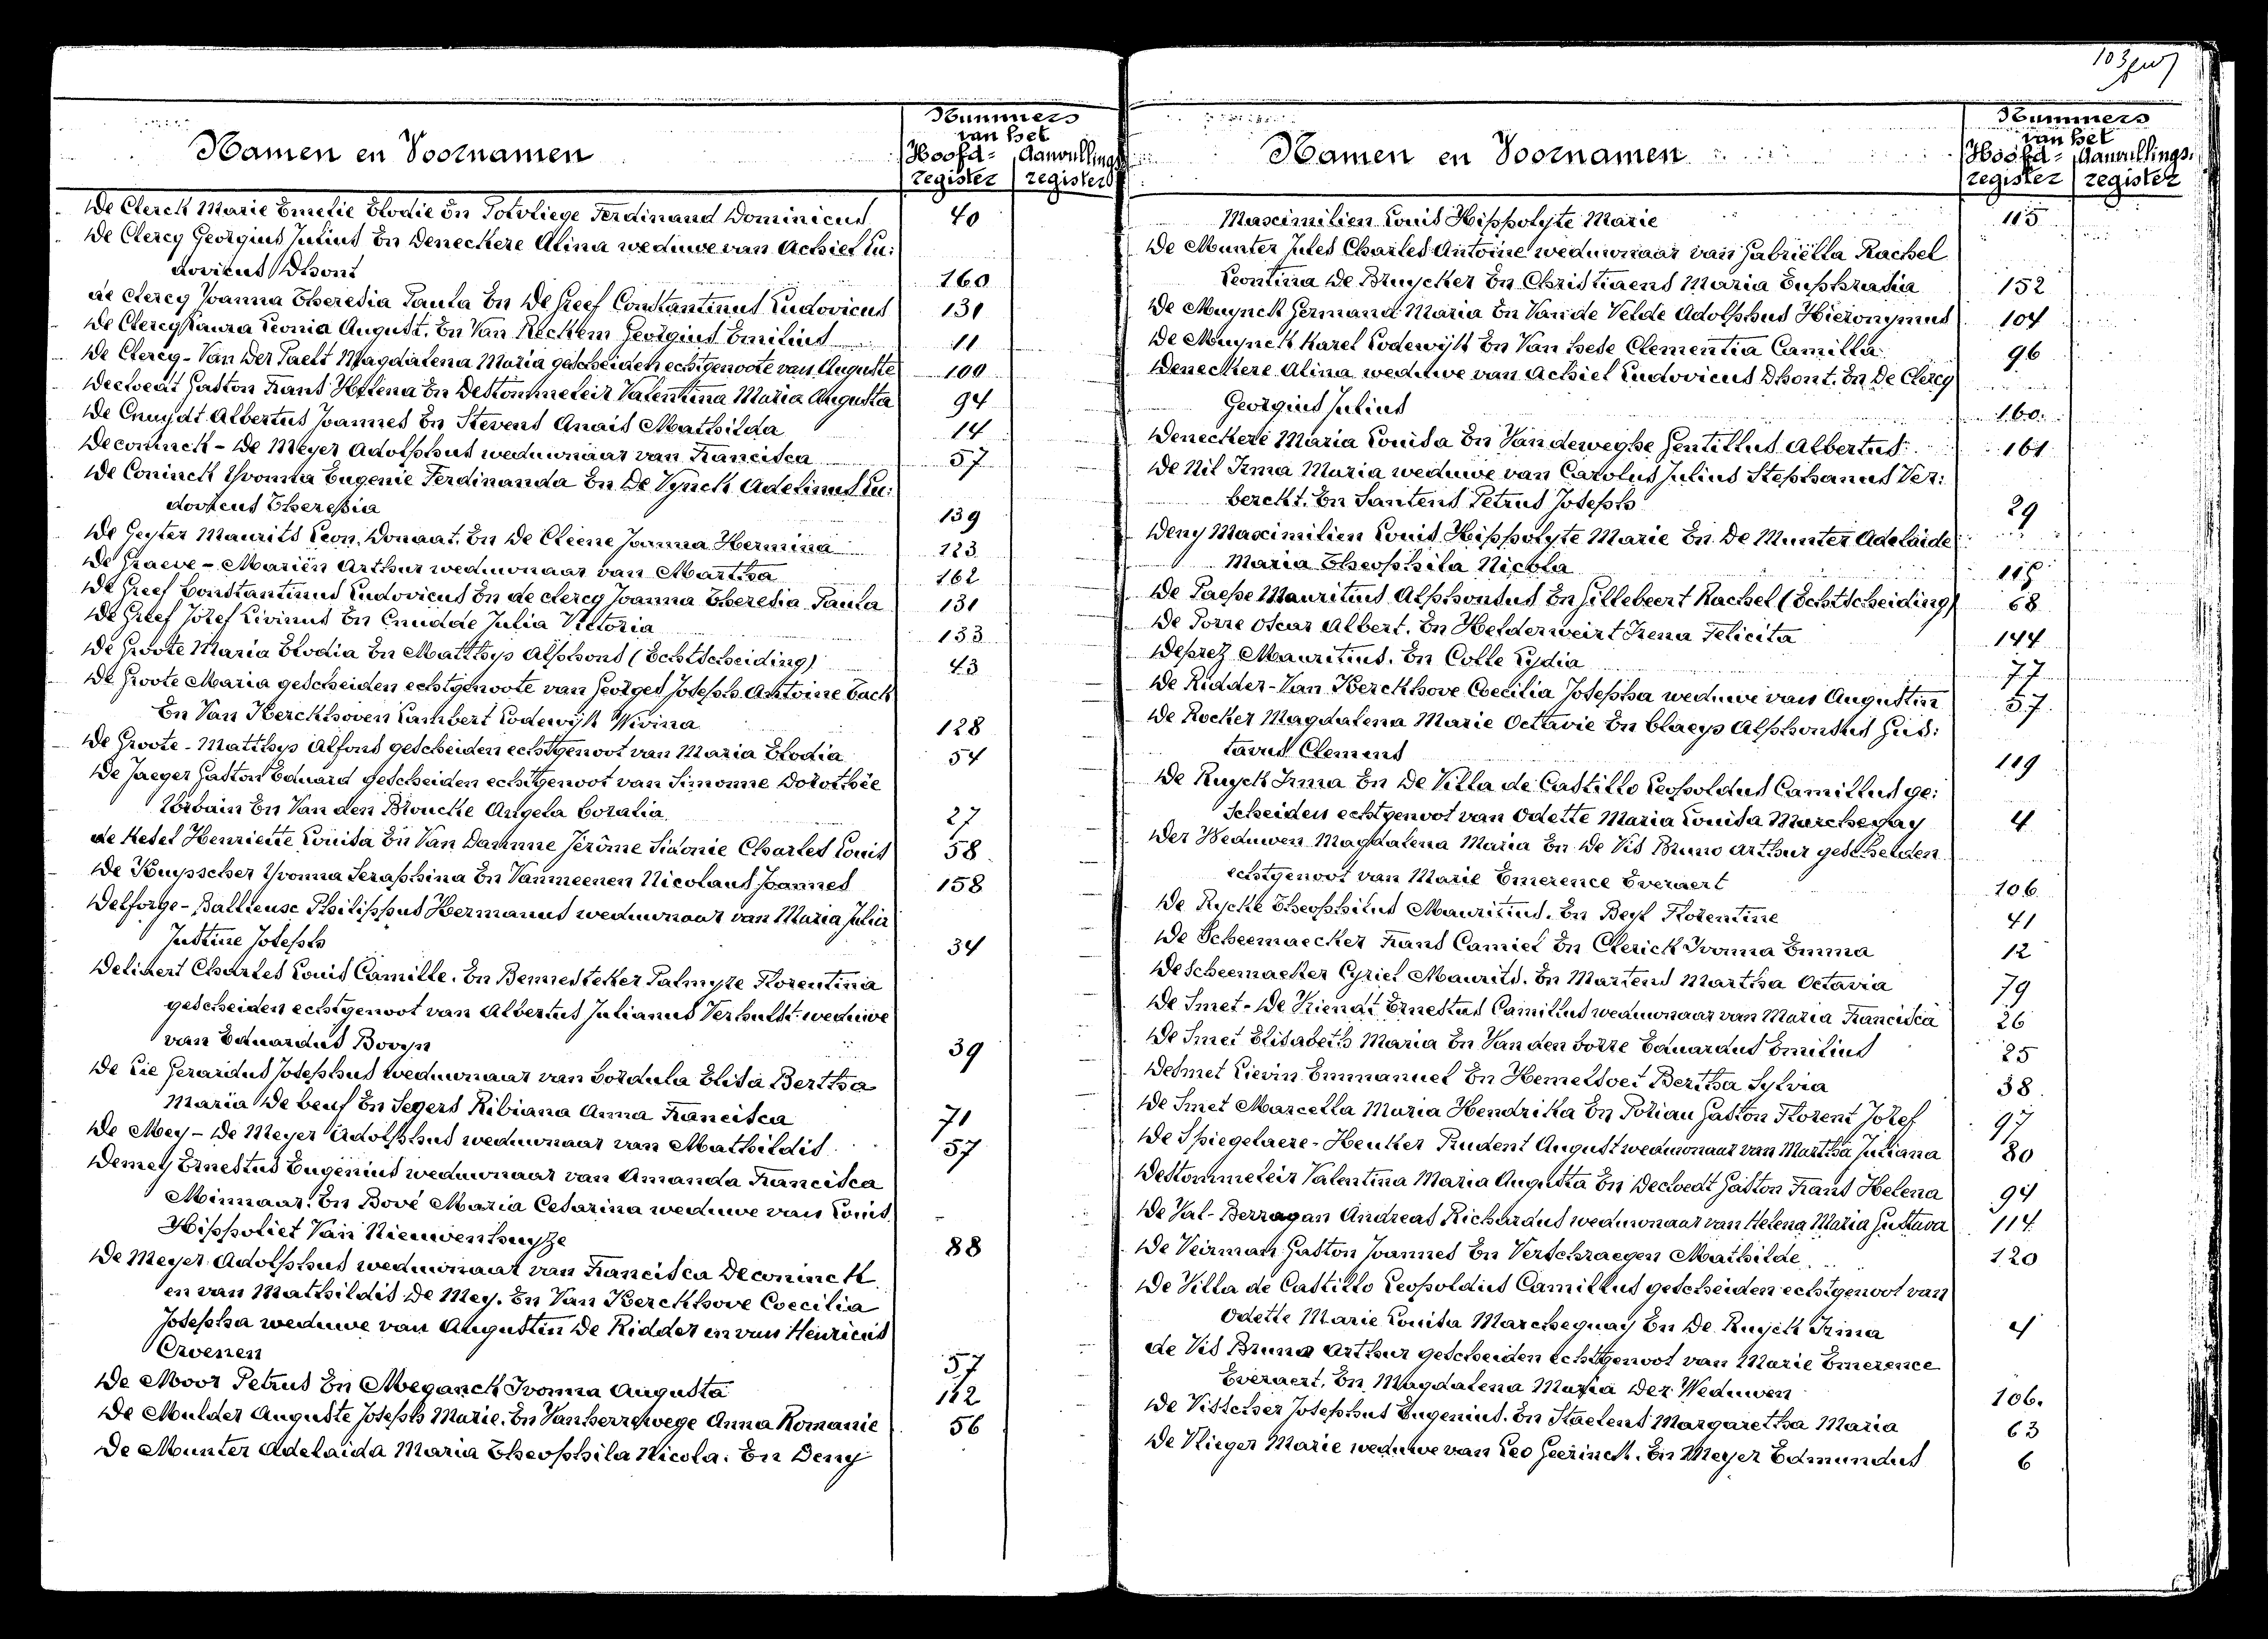 Namen en Voornamen
Nummers
van het
Hoofd- Aanvullings
register register
De Clerck Marie Emelie Elodie En Potvliege Ferdinand Dominicus 40
De Clercq Georgius Julius En Deneckere Alina weduwe van Achiel Lu:
dovicus Dhont 160
de Clercq Joanna Theresia Paula En De Greef Constantinus Ludovicus 131
De Clercq Laura Leonia August. En Van Reckem Georgius Emilius 11
De Clercq-Van Der Paelt Magdalena Maria gescheiden echtgenoote van Auguste 100
Decloedt Gaston Frans Helena En Destommeleir Valentina Maria Augusta 94
De Cnuydt Albertus Joannes En Stevens Anais Mathilda 14
Deconinck - De Meyer Adolphus weduwnaar van Francisca 57
De Coninck Yvonna Eugenie Ferdinanda En De Vynck Adelinus Lu:
dovicus Theresia 139
De Geyter Maurits Leon. Donaat. En De Cleene Joanna Hermina 123
De Graeve - Mariën Arthur weduwnaar van Martha 162
De Greef Constantinus Ludovicus En de clercq Joanna Theresia Paula 131
De Greef Jozef Livinus En Cnudde Julia Victoria 133
De Groote Maria Elodia En Matthys Alphons (Echtscheiding) 43
De Groote Maria gescheiden echtgenoote van Georges Joseph Antoine Back
En Van Kerckhoven Lambert Lodewijk Wivina 128
De Groote - Matthys Alfons gescheiden echtgenoot van Maria Elodia 54
De Jaeger Gaston Eduard gescheiden echtgenoot van Simonne Dorothée
Urbain En Van den Broucke Angela Coralia 27
de Ketel Henriette Louisa En Van Damme Jérôme Sidonie Charles Louis 58
De Kuysscher Yvonna Seraphina En Vanmeenen Nicolaus Joannes 158
Delforge-Ballieuse Philippus Hermanus weduwnaar van Maria Julia
Justine Joseph 34
Delivert Charles Louis Camille. En Bennesteker Palmyre Florentina
gescheiden echtgenoot van Albertus Julianus Verhulst. weduwe
van Eduardus Bovyn 39
De Lie Gerardus Josephus weduwnaar van Cordula Elisa Bertha
Maria De beuf En Segers Ribiana Anna Francisca 71
De Mey - De Meyer Adolphus weduwnaar van Mathildis 57
Demey Ernestus Eugenius weduwnaar van Amanda Francisca
Minnaar. En Bové Maria Cesarina weduwe van Louis
Hippoliet Van Nieuwenhuyze 88
De Meyer Adolphus weduwnaar van Francisca Deconinck
en van Mathildis De Mey. En Van Kerckhove Coecilia
Josepha weduwe van Augustin De Ridder en van Henricus
Crvenen 57
De Moor Petrus En Meganck Ivonna Augusta 112
De Mulder Auguste Joseph Marie. En Vanherrewege Anna Romanie 56
De Munter Adelaida Maria Theophila Nicola. En Deny
Namen en Voornamen
Nummers
van het
Hoofd- Aanvullings.
register register
Maximilien Louis Hippolyte Marie 115
De Munter Jules Charles Antoine weduwnaar van Gabriëlla Rachel
Leontina De Bruycker En Christiaens Maria Euphrasia 152
De Muynck Germana Maria En Van de Velde Adolphus Hieronymus 104
De Muynck Karel Lodewijk En Van hese Clementia Camilla 96
Deneckere Alina weduwe van Achiel Ludovicus Dhont. En De Clercq
Georgius Julius 160
Deneckere Maria Louisa En Vandeweghe Gentillus Albertus 161
De Nil Irma Maria weduwe van Carolus Julius Stephanus Ver:
berckt. En Santens Petrus Joseph 29
Deny Maximilien Louis Hippolyte Marie En De Munter Adelaide
Maria Theophila Nicola 115
De Paepe Mauritius Alphonsus En Gillebeert Rachel (Echtscheiding) 68
De Porre Oscar Albert. En Helderweirt Irena Felicita 144
Deprez Mauritius. En Colle Lydia 77
De Ridder-Van Kerckhove Coecilia Josepha weduwe van Augustin 57
De Rocker Magdalena Marie Octavie En Claeys Alphonsus Gus:
tavus Clemens 119
De Ruyck Irma En De Villa de Castillo Leopoldus Camillus ge:
scheiden echtgenoot van Odette Maria Louisa Marchegay 4
Der Weduwen Magdalena Maria En De Vis Bruno Arthur gescheiden
echtgenoot van Marie Emerence Everaert 106
De Rycke Theophilus Mauritius. En Beyl Florentine 41
De Scheemaecker Frans Camiel En Clerick Ivonna Emma 12
Descheemaeker Cyriel Maurits. En Martens Martha Octavia 79
De Smet-De Vriendt Ernestus Camillus weduwnaar van Maria Francisca 26
De Smet Elisabeth Maria En Van den borre Eduardus Emilius 25
Desmet Lievin Emmanuel En Hemelsoet Bertha Sylvia 38
De Smet Marcella Maria Hendrika En Poriau Gaston Florent Jozef 97
De Spiegelaere-Heuker Prudent August weduwnaar van Martha Juliana 80
Destommeleir Valentina Maria Augusta En Decloedt Gaston Frans Helena 94
De Val-Berragan Andreas Richardus weduwnaar van Helena Maria Gustava 114
De Veirman Gaston Joannes En Verschraegen Mathilde 120
De Villa de Castillo Leopoldus Camillus gescheiden echtgenoot van
Odette Marie Louisa Marcheguay En De Ruyck Irma 4
de Vis Bruno Arthur gescheiden echtgenoot van Marie Emerence
Everaert. En Magdalena Maria Der Weduwen 106.
De Visscher Josephus Eugenius. En Staelens Margaretha Maria 63
De Vlieger Marie weduwe van Leo Geerinck. En Meyer Edmundus 6